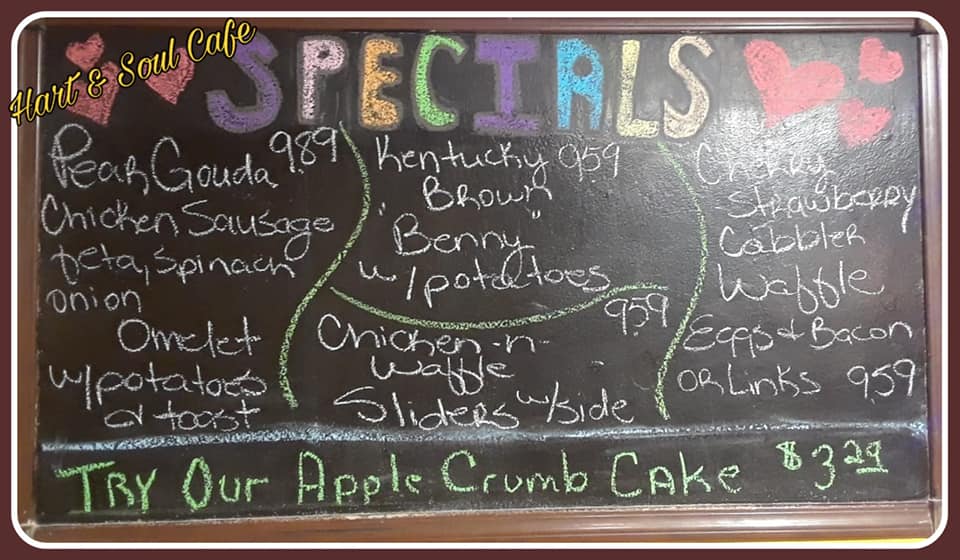 Hart & Soul Cafe
SPECIALS
Pear Gouda 9.89
Chicken Sausage
feta, spinach
onion
Omelet
w/potatoes
& toast
Kentucky 9.59
Brown
Benny
w/potatoes
Chicken-n- 9.59
Waffle
Sliders w/side
Cherry
Strawberry
Cobbler
Waffle
Eggs & Bacon
OR Links 9.59
TRY Our Apple Crumb CAke $3.29